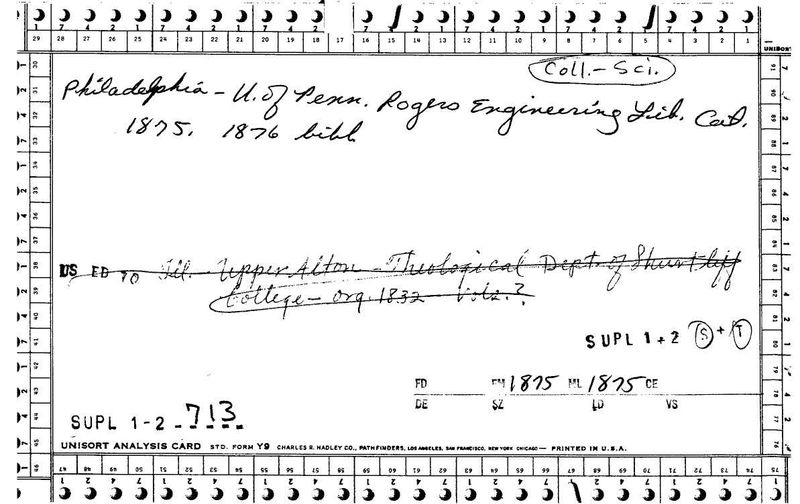 29 28 27 26 25 24 23 22 21 20 19 18 17 16 15 14 13 12 11 10 9 8 7 6 5 4 3 2 1
UNISORT
Coll.-Sci.
Philadelphia - U. of Penn. Rogers Engineering Lib. Cat.
1875. 1876 bibl.
US ED 70 Ill - Upper Alton - Theological Dept. of Shurtliff
College - org. 1832 Vols.?
SUPL 1+2 S + T
FD EM 1875 ML 1875 CE
DE SZ LD VS
SUPL 1-2 - 713
UNISORT ANALYSIS CARD STD. FORM Y9 CHARLES R. HADLEY CO., PATHFINDERS, LOS ANGELES, SAN FRANCISCO, NEW YORK CHICAGO — PRINTED IN U.S.A.
47 48 49 50 51 52 53 54 55 56 57 58 59 60 61 62 63 64 65 66 67 68 69 70 71 72 73 74 75